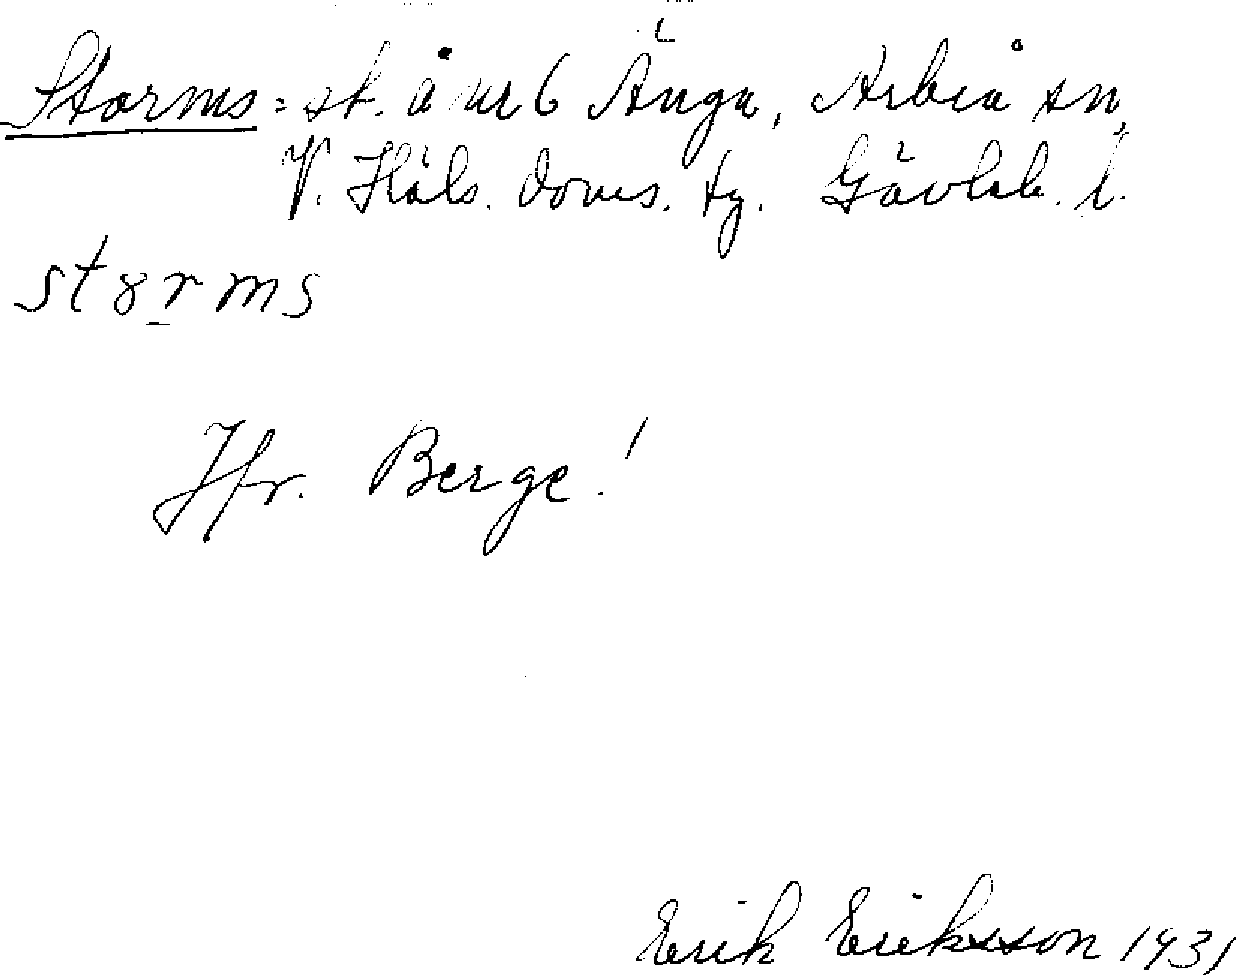 Storms = st. å nr 6 Änga, Arbrå sn,
V. Häls. doms. tg. Gävleb. l.
stormS
Jfr. Berge!
Erik Eriksson 1931